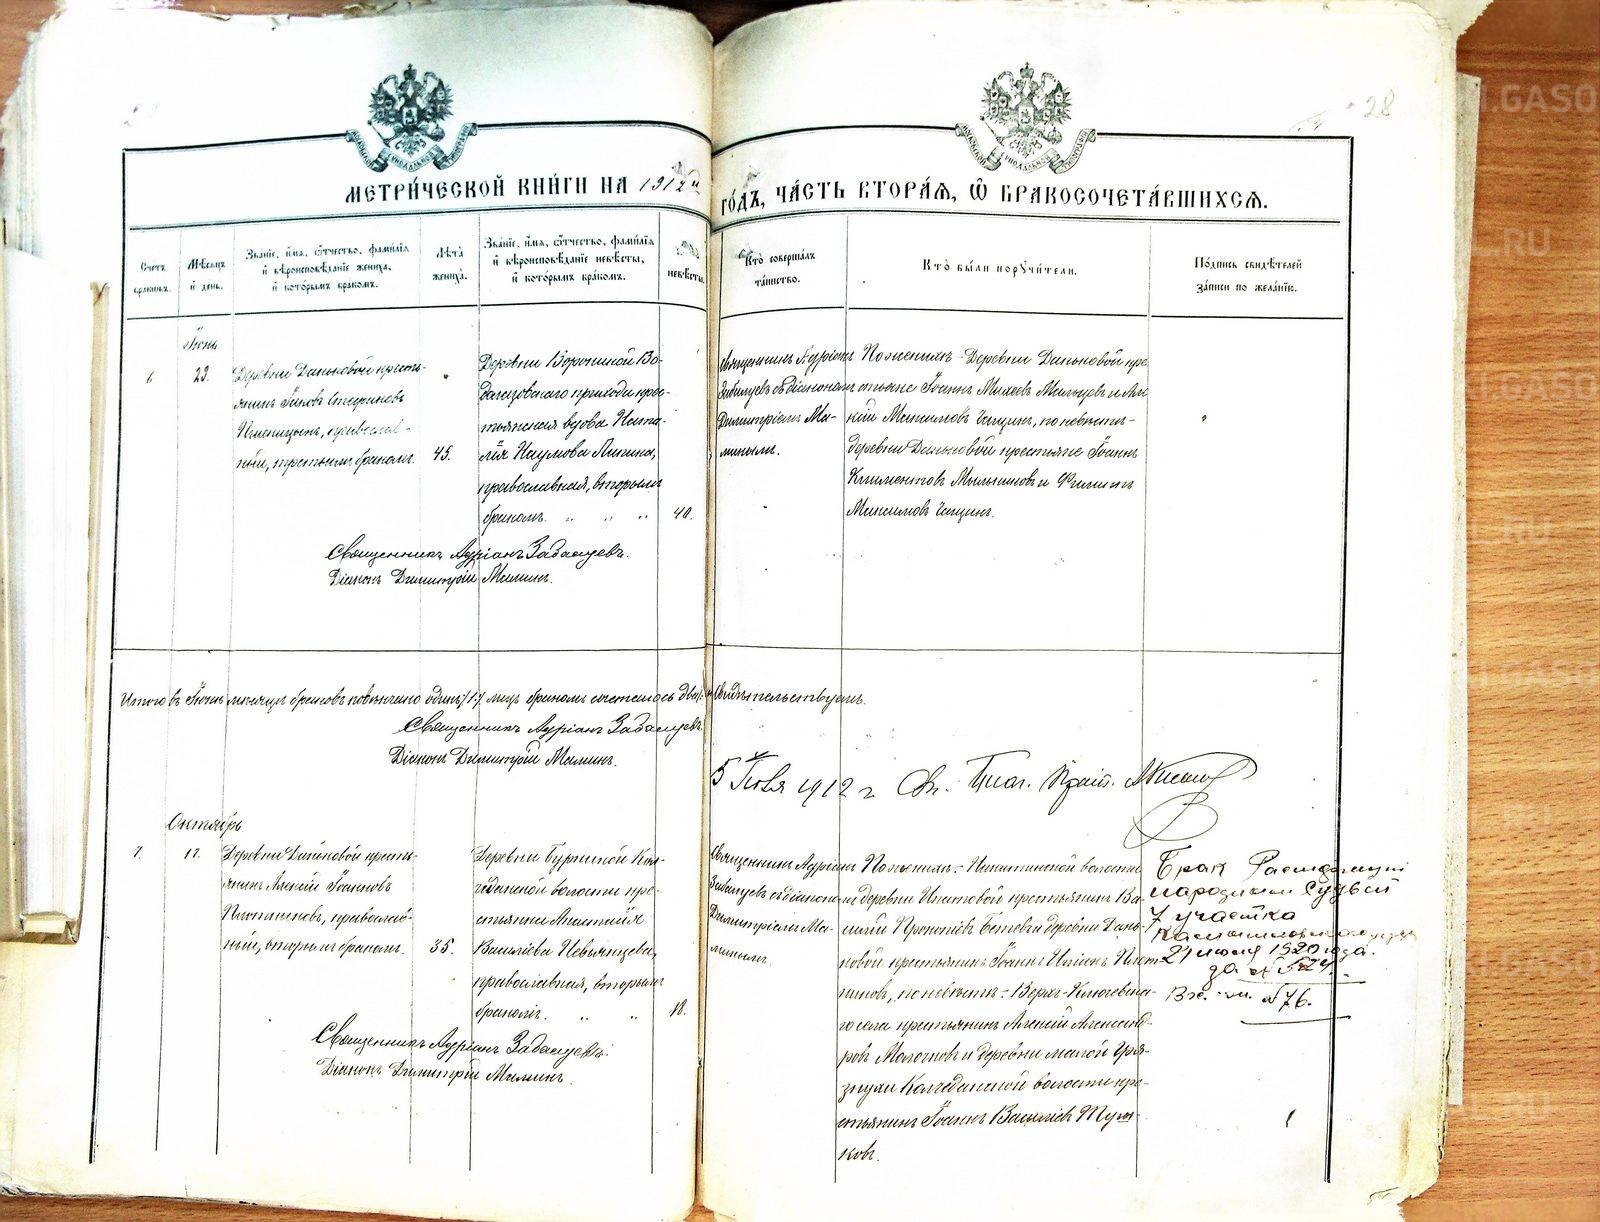 28
МЕТРИ́ЧЕСКОЙ КНИ́ГИ НА 1912й
ГО́ДЪ, ЧА́СТЬ ВТОРА́Я, Ѽ БРАКОСОЧЕТА́ВШИХСЯ.
Счетъ
браковъ.
Мѣсяцъ
и день.
Зва́нїе, и́мя, ѻ҆́тчество, фами́лїя
и҆ вѣроисповѣ́данїе жениха̀,
и҆ кото́рымъ бра́комъ.
Лѣта̀
жениха̀.
Зва́нїе, и́мя, ѻ҆́тчество, фами́лїя
и҆ вѣроисповѣ́данїе невѣ́сты,
и҆ кото́рымъ бра́комъ.
невѣ́сты.
Кто̀ соверша́лъ
та́инство.
Кто̀ бы́ли порꙋчи́тели.
По́дпись свидѣ́телей
за́писи по жела́нїю.
Іюнь
6
29.
Деревни Даньковой кресть-
янинъ Іаковъ Стефановъ
Пшеницынъ, православ-
ный, третьимъ бракомъ.
45.
Деревни Ворониной Во-
приходу крес-
тьянская вдова Ната-
лія Наумова Липина,
православная, вторымъ
бракомъ. " " "
40.
Священникъ Адріанъ
Забалуевъ съ діакономъ
Димитріемъ Ма-
минымъ.
По женихѣ: Деревни Даньковой кре-
стьяне Іоаннъ Михеевъ Мальцевъ и
Максимовъ по невѣстѣ-
деревни Даньковой крестьяне Іоаннъ
Климентовъ Мыльниковъ и Филиппъ
Максимовъ
Священникъ Адріанъ Забалуевъ.
Діаконъ Димитрій Маминъ.
Итого въ Іюнѣ мѣсяцѣ браковъ повѣнчано одинъ /1/, лицъ бракомъ сочеталось два /2/. Свидѣтельствуемъ.
Священникъ Адріанъ Забалуевъ.
Діаконъ Димитрій Маминъ.
5 Іюля 1912 г.
Октябрь
7.
17.
Деревни Даньковой кресть-
янинъ Алексій Іоанновъ
Плотниковъ, православ-
ный, вторымъ бракомъ.
35.
Деревни Бурниной Кол-
чеданской волости кре-
стьянка Анастасія
Василіева Невьянцева,
православная, вторымъ
бракомъ. " "
18.
Священникъ Адріанъ
Забалуевъ съ діакономъ
Димитріемъ Ма-
минымъ.
По женихѣ:- волости
деревни крестьянинъ Ва-
силій Прокопіевъ и деревни Дань-
ковой крестьянинъ Іоаннъ Плот-
никовъ, по невѣстѣ:- Верхъ-Ключевска-
го села крестьянинъ Алексій Александ-
ровъ Молочковъ и деревни малой Гря-
знухи Колчеданской волости кре-
стьянинъ Іоаннъ Василіевъ
ковъ.
Брак Расторгнут
народным Судьей
7 участка
Камышловского уезда
21 июля 1920 года
за № 524.
№ 76.
Священникъ Адріанъ Забалуевъ.
Діаконъ Димитрій Маминъ.